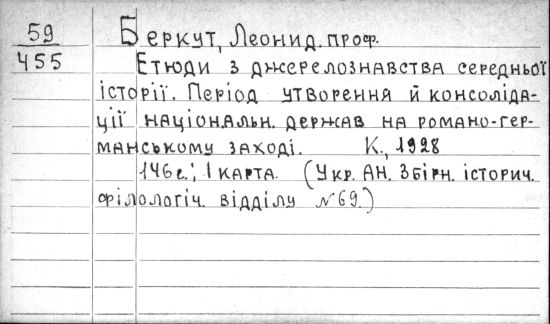 59
455
Беркут, Леонид. проф.
Етюди з джерелознавства середньої
історії. Період утворення й консоліда-
ції національн. держав на романо-гер-
манському заході. К., 1928
146с.; 1 карта. (Укр. АН. Збірн. історич.
філологіч. відділу №69.)